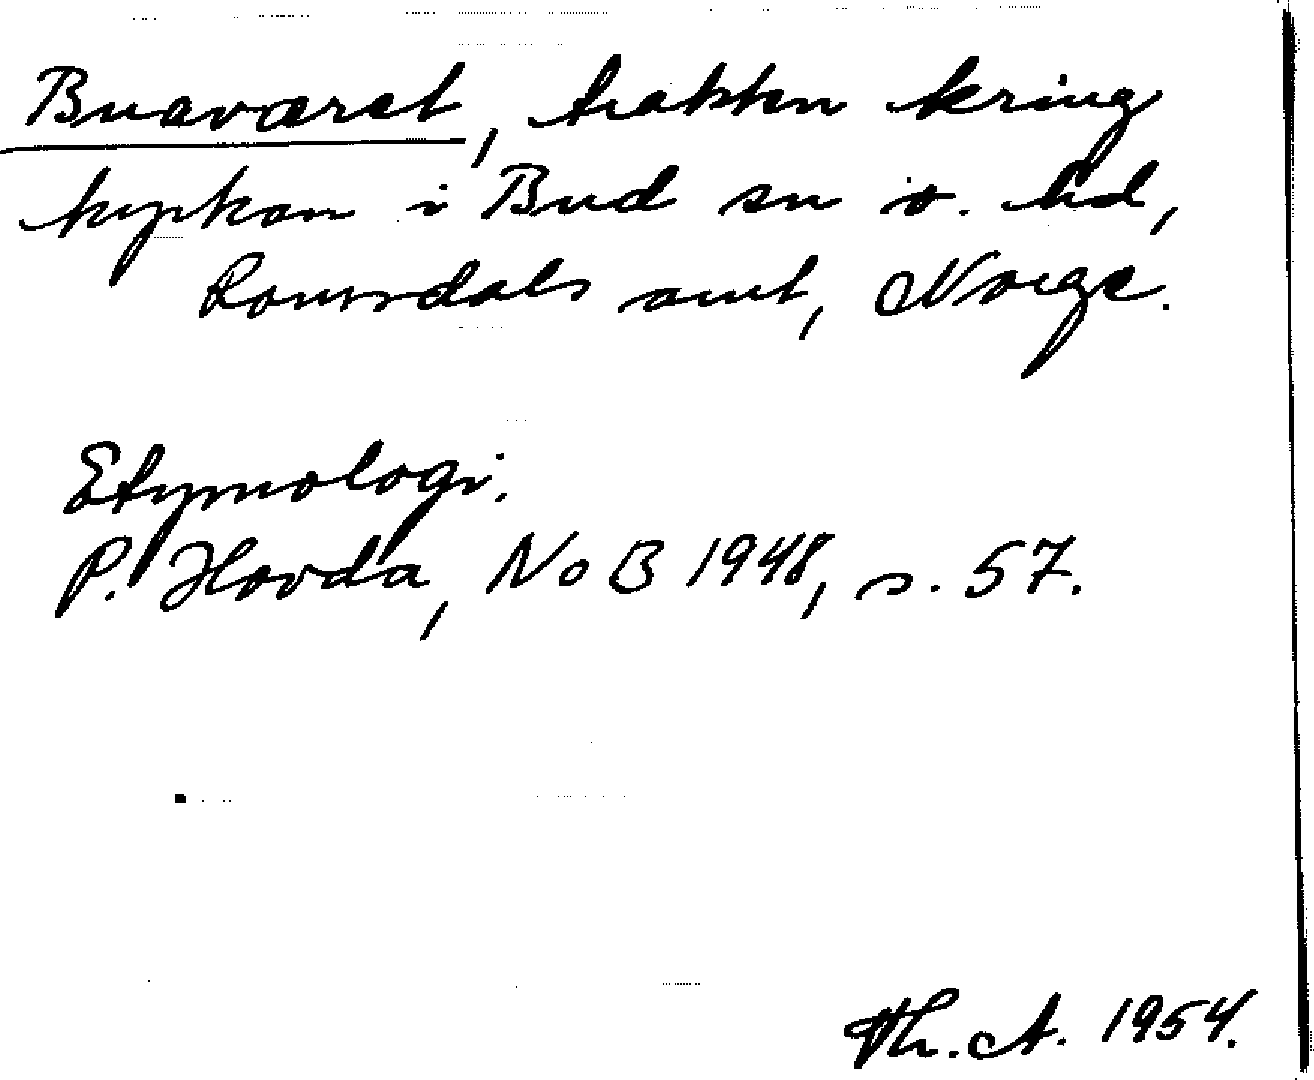 Buaværet, trakten kring
kyrkan i Bud sn o. hd,
Romsdals amt, Norge.
Etymologi.
P. Hovda, NoB 1948, s. 57.
Th. A. 1954.